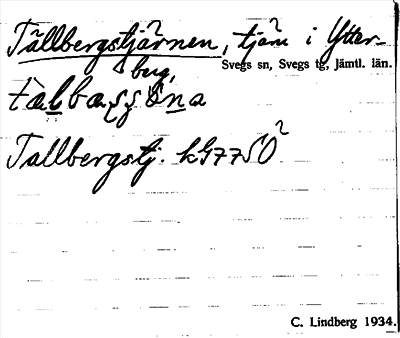 Tällbergstjärnen, tjärn i Ytter-
berg,
Svegs sn, Svegs tg, Jämtl. län.
Tallbergstj. kG7750²
C. Lindberg 1934.